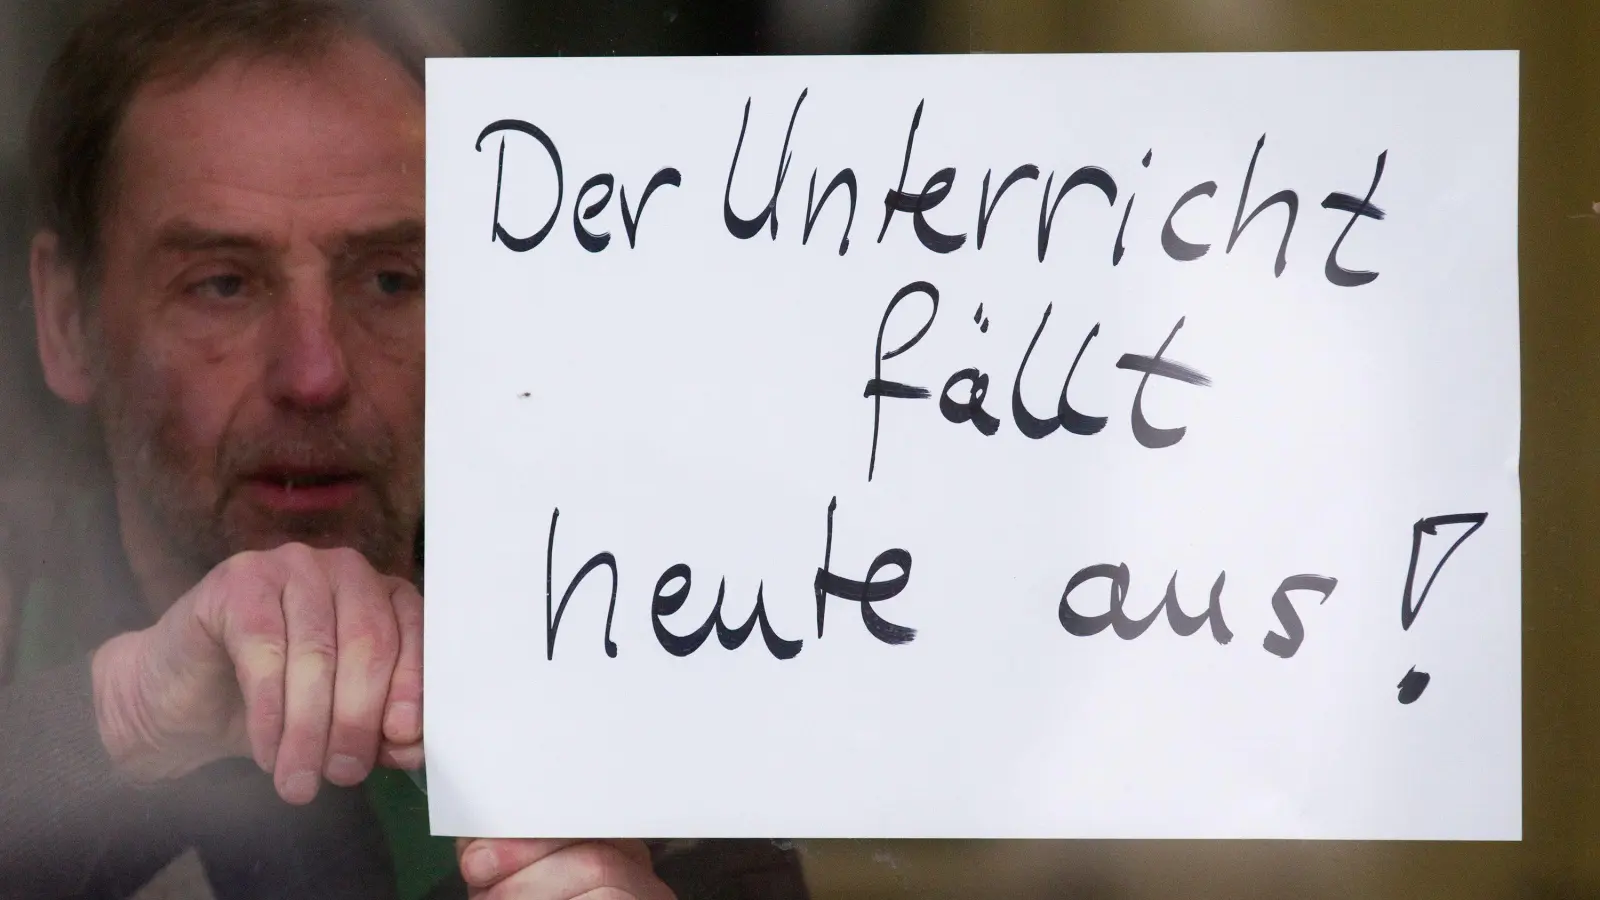 Der Unterricht
fällt
heute aus!